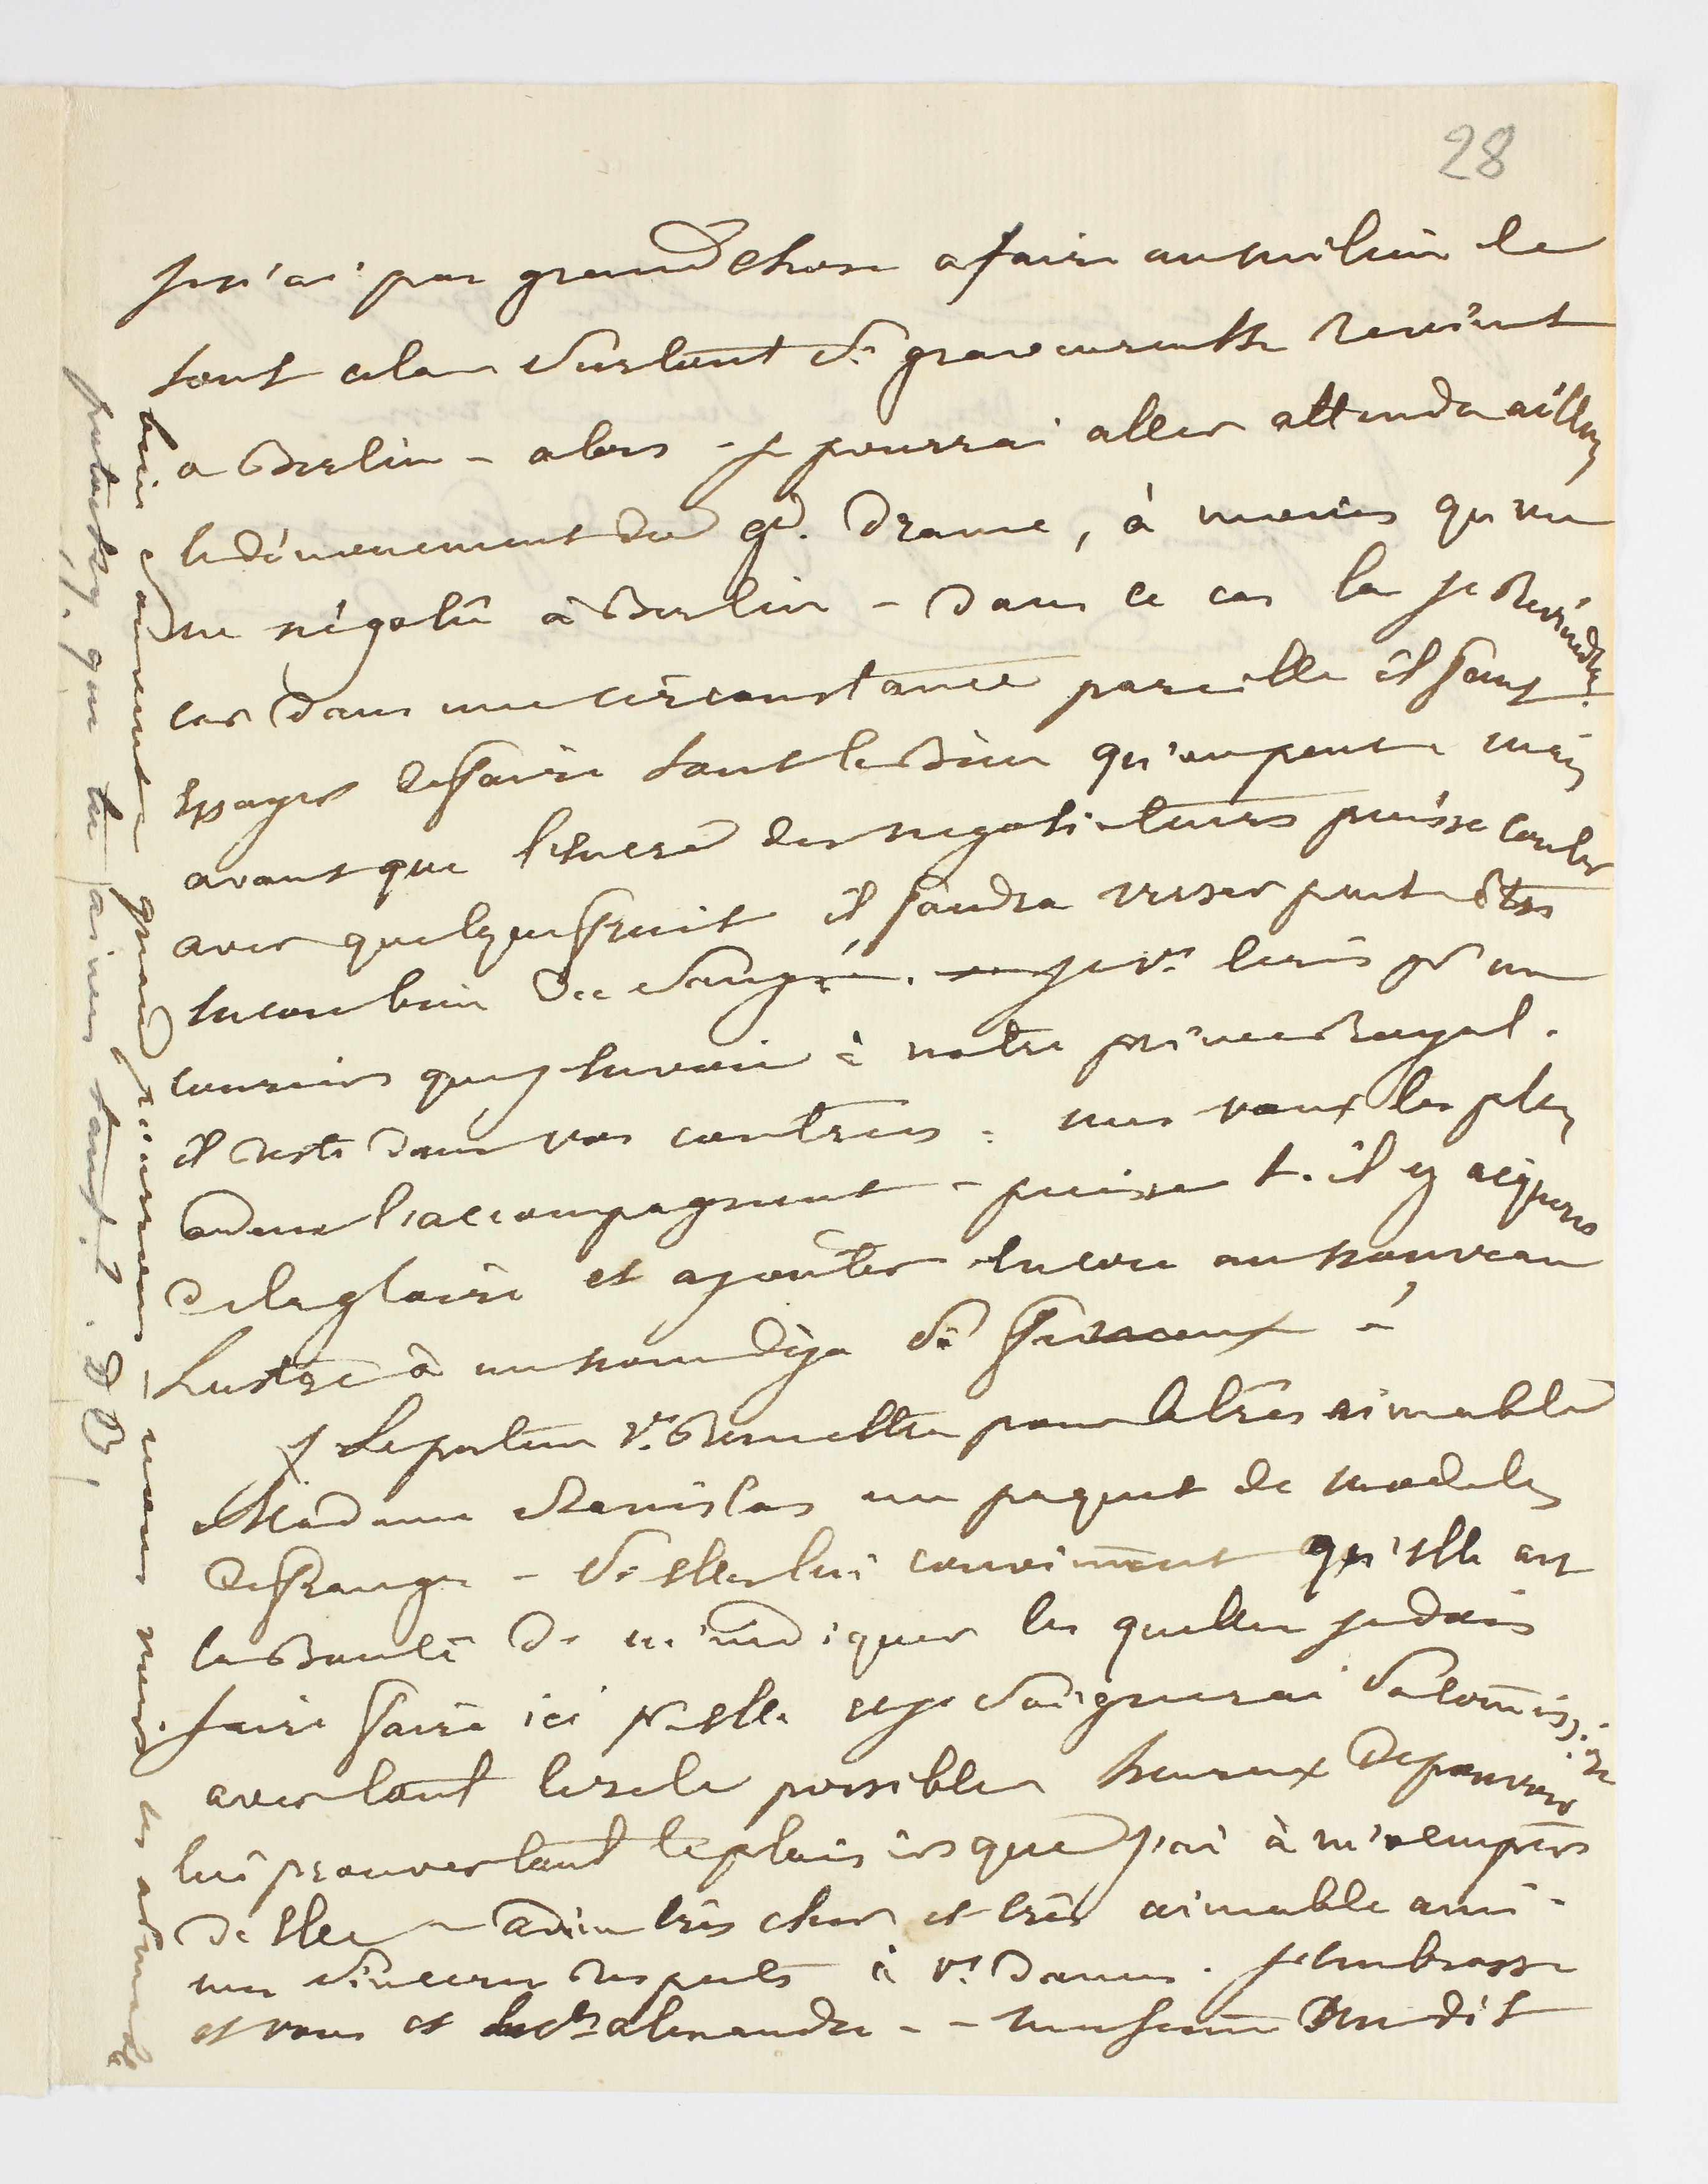 28
je n'ai pas grand chose a faire au milieu de
tout cela surtout si gravenreuth revient
a Berlin - alors je pourrai aller attendre ailleurs
le dénouement du gd. Drame, à moins qu'on
ne négotie à Berlin - dans ce cas la je Reviendrai
car dans une circonstance pareille il faut
essayer de faire tout le Bien qu'on peut mais
avant que l'encre des negotiateurs puisse couler
avec quelque fruit il faudra verser peut être
encore bien du sang. je vs. ecris pr un
courier que j'envoie à notre prince Royal.
il reste dans vos contrées. mes vœux les plus
ardens l'accompagnent - puisse t-il y acquerir
de la gloire et ajouter encore un nouveau
Lustre à un nom déja si fameux
Le porteur vs. Remettra pour la très aimable
Madame Stanislas un paquet de modeles
de franges - si elles lui conviennent qu'elle ait
la Bonté de m'indiquer les quelles je dois
faire faire ici pr elle et je soignerai sa commission
avec tout le zele possible heureux de pouvoir
lui prouver tout le plaisir que j'ai à m'occuper
d'elle - adieu très cher et très aimable ami -
mes sincères respects à vs. Dames. j'embrasse
et vous et le cte alexandre - - ma femme me dit
bien
grand
potocky. que tu aimes tant. D B.